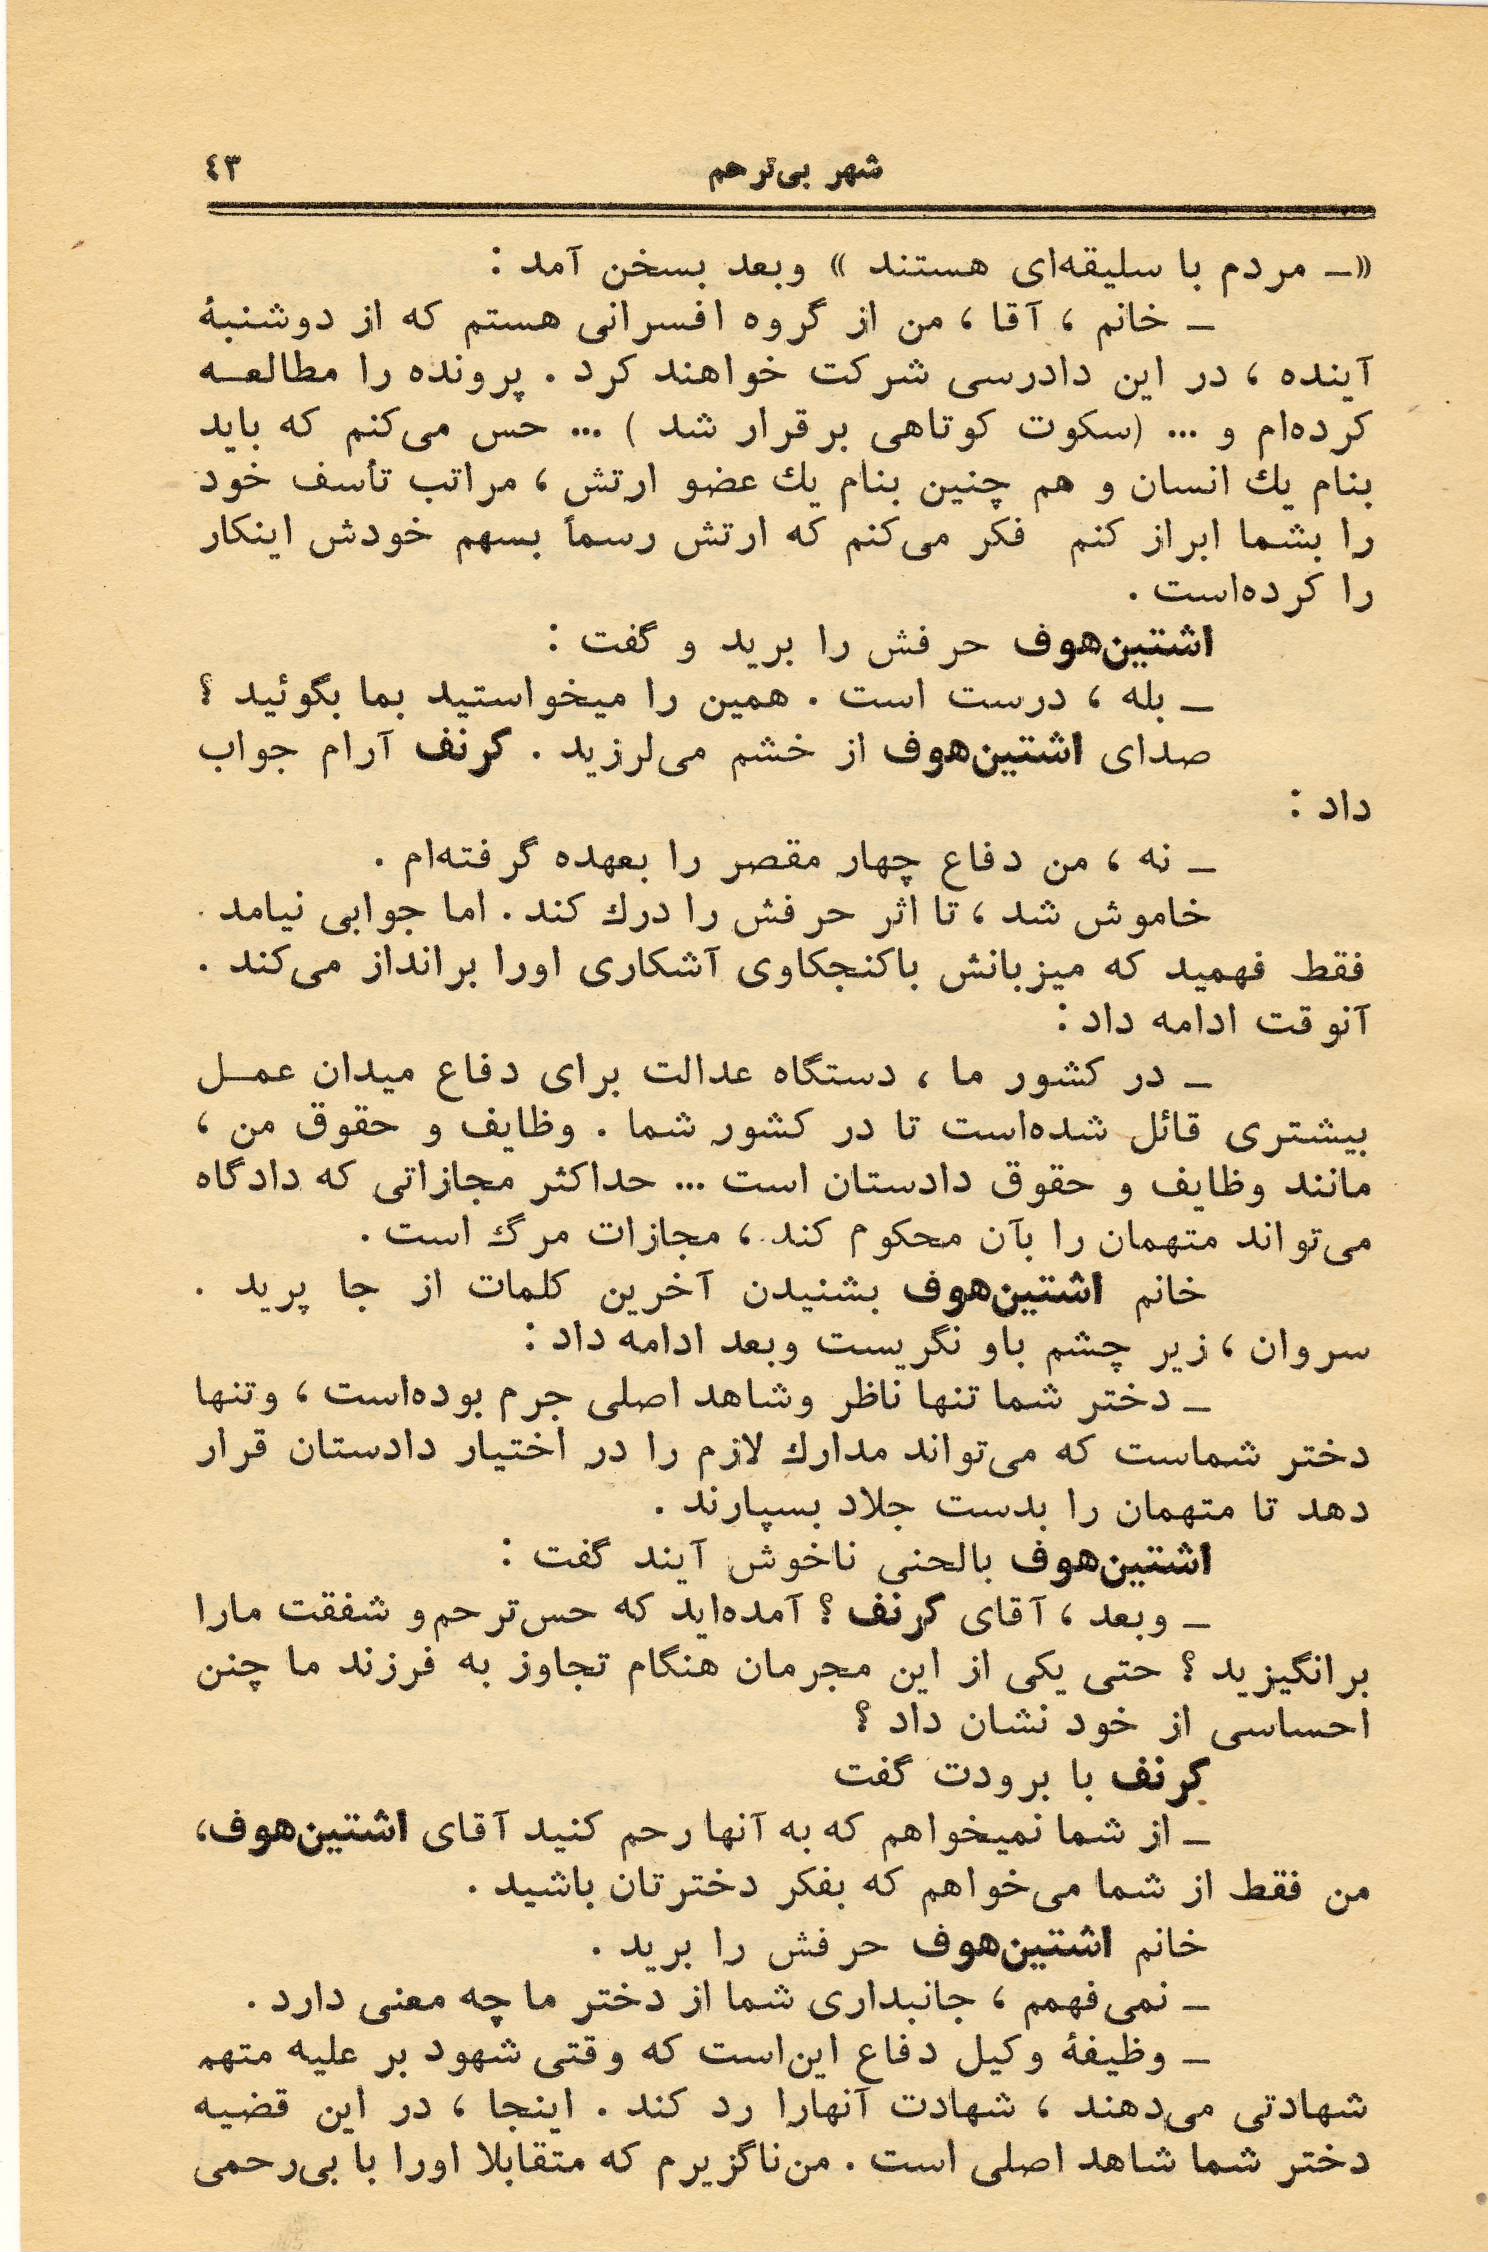 شهر بی‌ترحم ٤٣
«ــ مردم با سلیقه‌ای هستند» وبعد بسخن آمد :
ــ خانم ، آقا ، من از گروه افسرانی هستم که از دوشنبهٔ
آینده ، در این دادرسی شرکت خواهند کرد . پرونده را مطالعــه
کرده‌ام و ... (سکوت کوتاهی برقرار شد ) ... حس می‌کنم که باید
بنام یك انسان و هم چنین بنام یك عضو ارتش ، مراتب تأسف خود
را بشما ابراز کنم فکر می‌کنم که ارتش رسماً بسهم خودش اینکار
را کرده‌است .
اشتین‌هوف حرفش را برید و گفت :
ــ بله ، درست است . همین را میخواستید بما بگوئید ؟
صدای اشتین‌هوف از خشم می‌لرزید . گرنف آرام جواب
داد :
ــ نه ، من دفاع چهار مقصر را بعهده گرفته‌ام .
خاموش شد ، تا اثر حرفش را درك کند . اما جوابی نیامد .
فقط فهمید که میزبانش باکنجکاوی آشکاری اورا برانداز می‌کند .
آنوقت ادامه داد :
ــ در کشور ما ، دستگاه عدالت برای دفاع میدان عمــل
بیشتری قائل شده‌است تا در کشور شما . وظایف و حقوق من ،
مانند وظایف و حقوق دادستان است ... حداکثر مجازاتی که دادگاه
می‌تواند متهمان را بآن محکوم کند ، مجازات مرگ است .
خانم اشتین‌هوف بشنیدن آخرین کلمات از جا پرید .
سروان ، زیر چشم باو نگریست وبعد ادامه داد :
ــ دختر شما تنها ناظر وشاهد اصلی جرم بوده‌است ، وتنها
دختر شماست که می‌تواند مدارك لازم را در اختیار دادستان قرار
دهد تا متهمان را بدست جلاد بسپارند .
اشتین‌هوف بالحنی ناخوش آیند گفت :
ــ وبعد ، آقای گرنف ؟ آمده‌اید که حس‌ترحم‌و شفقت مارا
برانگیزید ؟ حتی یکی از این مجرمان هنگام تجاوز به فرزند ما چنن
احساسی از خود نشان داد ؟
گرنف با برودت گفت
ــ از شما نمیخواهم که به آنها رحم کنید آقای اشتین‌هوف،
من فقط از شما می‌خواهم که بفکر دخترتان باشید .
خانم اشتین‌هوف حرفش را برید .
ــ نمی‌فهمم ، جانبداری شما از دختر ما چه معنی دارد .
ــ وظیفهٔ وکیل دفاع این‌است که وقتی شهود بر علیه متهم
شهادتی می‌دهند ، شهادت آنهارا رد کند . اینجا ، در این قضیه
دختر شما شاهد اصلی است . من‌ناگزیرم که متقابلا اورا با بی‌رحمی